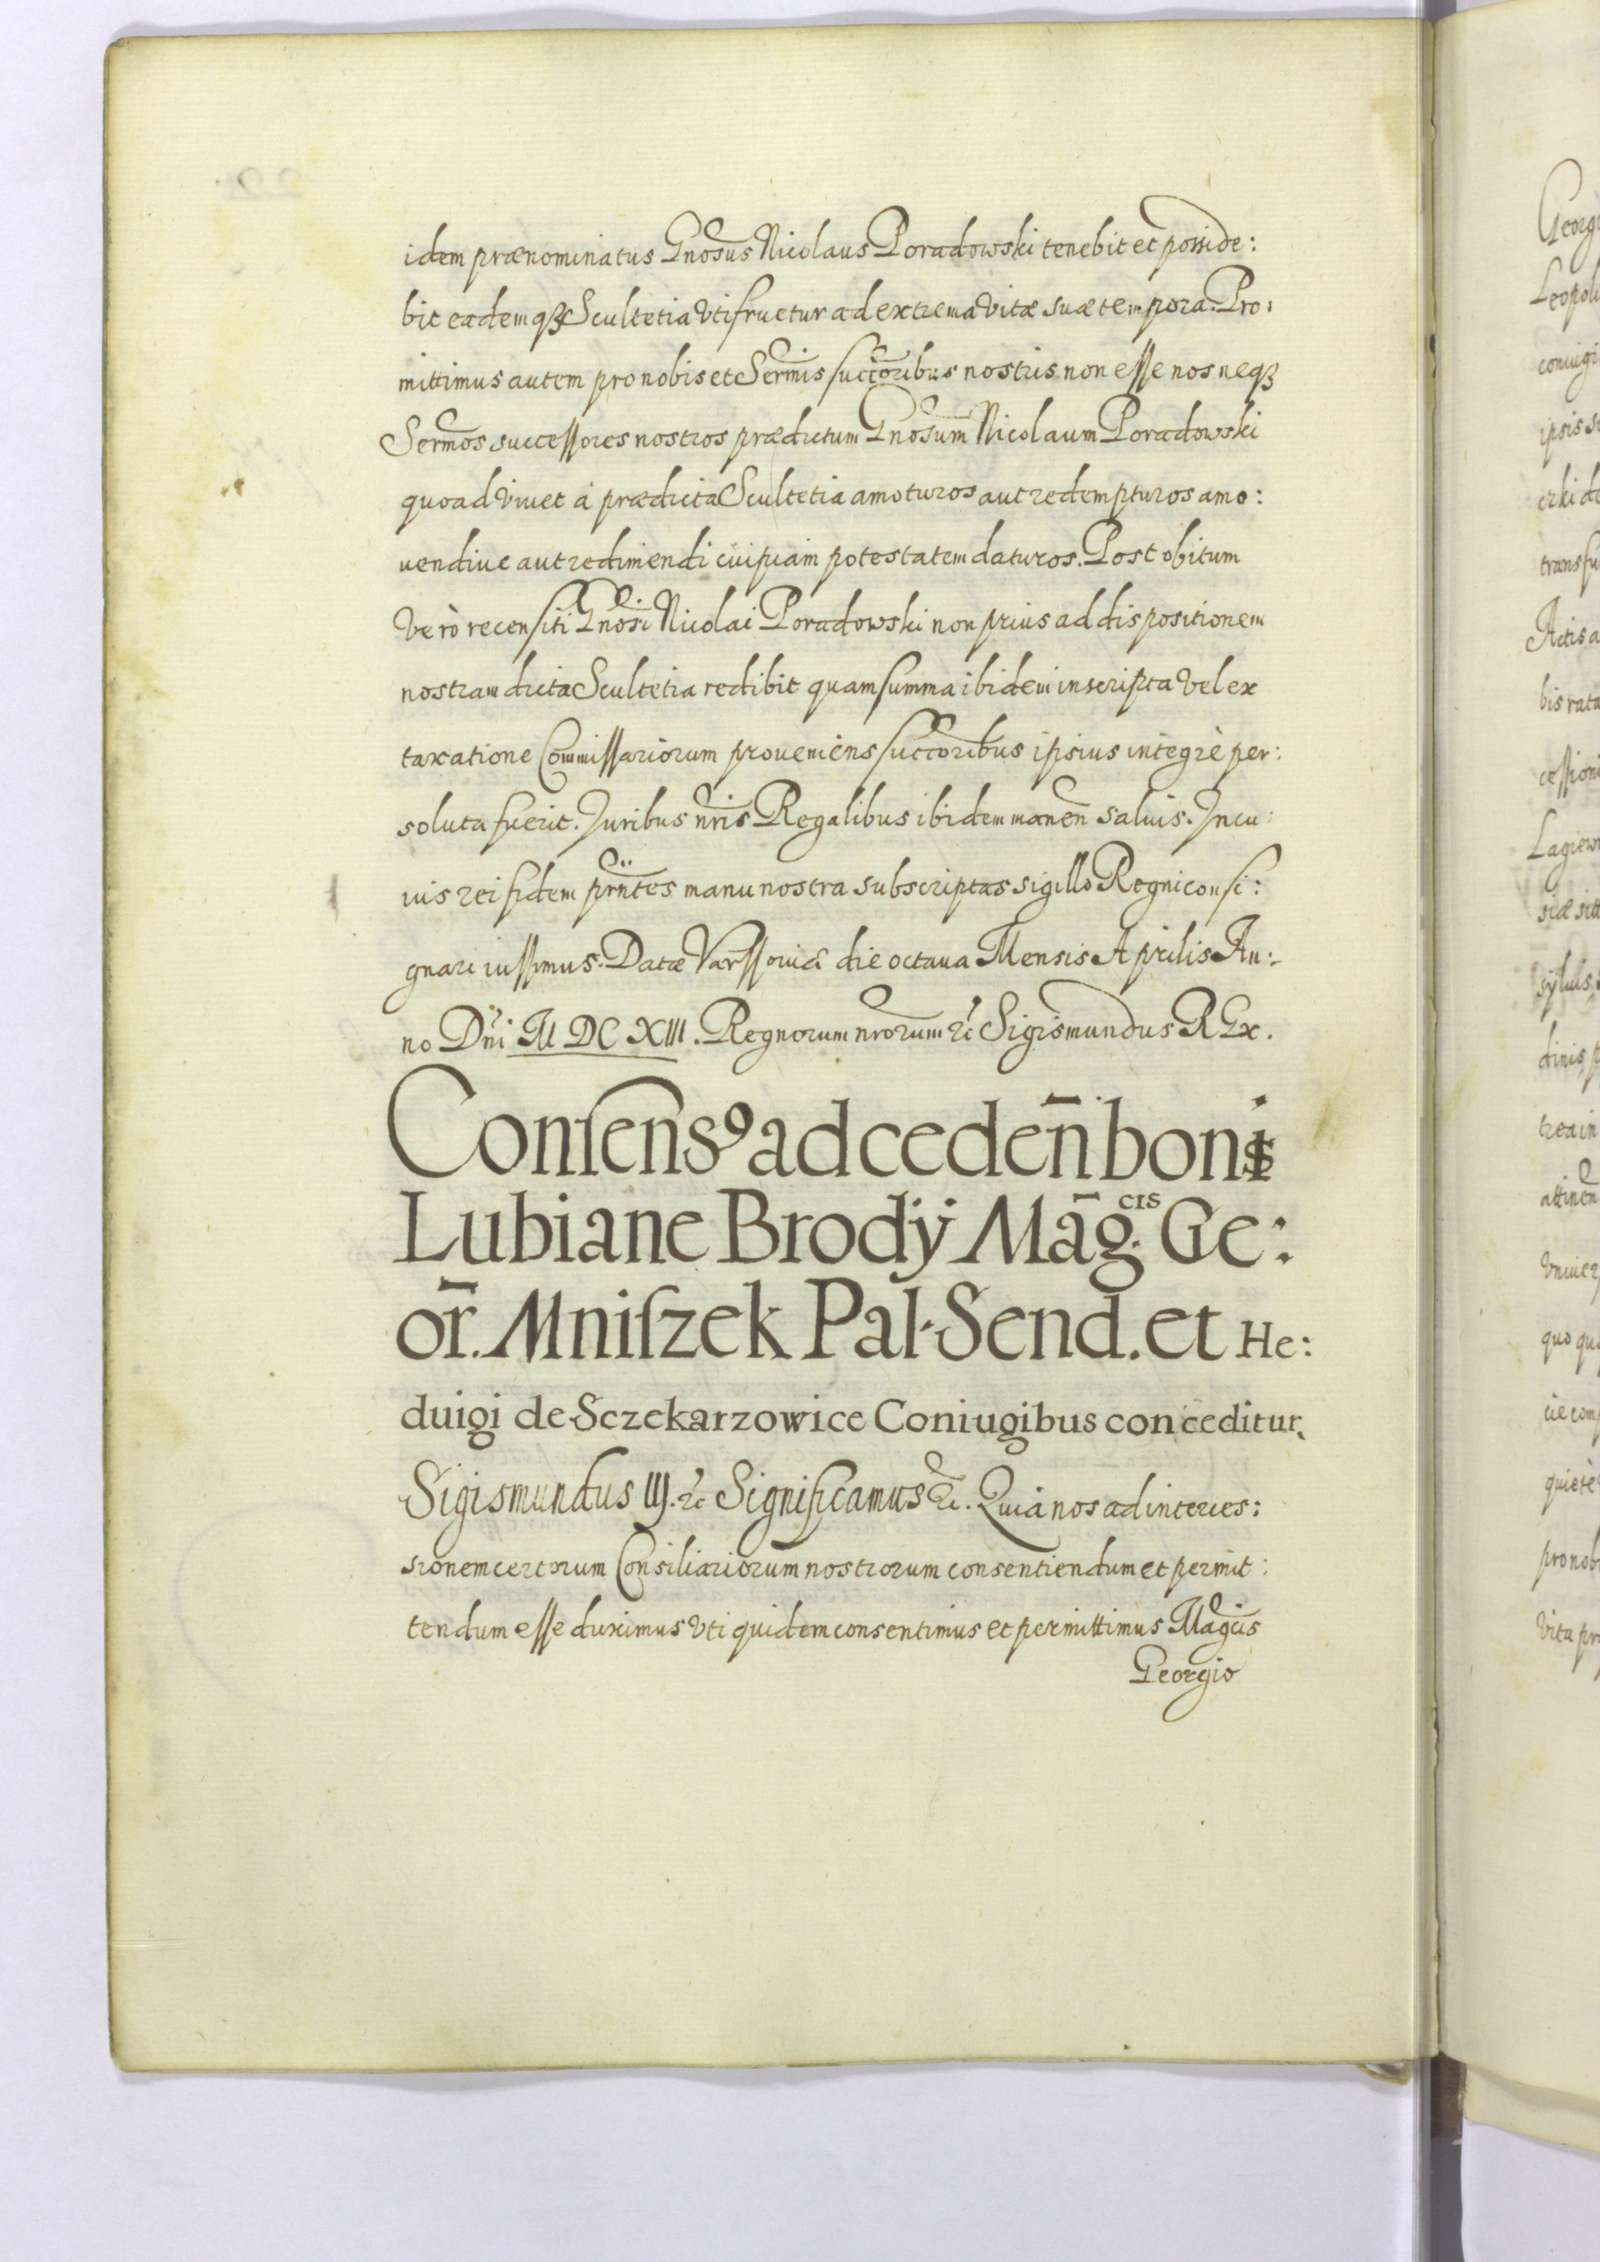 idem prænominatus Gnosus Nicolaus Poradowski tenebit et posside:
bit eademqȝ Scultetia Vti fruetur ad extrema Vitæ suæ tempora. Pro:
mittimus autem pro nobis et Sermis succoribus nostris non esse nos neqȝ
Sermos successores nostros prædictum Gnosum Nicolaum Poradowski
quoad Viuet à prædicta Scultetia amoturos aut redempturos amo:
uendiue aut redimendi cuipiam potestatem daturos. Post obitum
Verò recensiti Gnosi Nicolai Poradowski non prius ad dispositionem
nostram dicta Scultetia redibit quam summa ibidem inscripta Vel ex
taxatione Commissariorum proueniens succoribus ipsius integrè per:
soluta fuerit. Juribus nris Regalibus ibidem manen̄ saluis. Jn cu:
ius rei fidem prntes manu nostra subscriptas sigillo Regni consi:
gnari iussimus. Datæ Varssouiæ die octaua Mensis Aprilis An:
no Dni M DC XIII. Regnorum nrorum ꝛc Sigismundus REx.
Conſensꝰ ad ceden̄ bonis
Lubiane Brodÿ Māg.cis Ge:
or̄. Mniſzek Pal. Send. et He:
duigi de Sczekarzowice Coniugibus conceditur
Sigismundus IIJ. ꝛc Significamus &c. Quia nos ad interces:
sionem certorum Consiliariorum nostrorum consentiendum et permit:
tendum esse duximus Vti quidem consentimus et permittimus Magcis
Georgio
Georgi
Leopol
coniugi
ipsis s
erki de
trans fu
Actis a
bis rata
cessioni
Lagiew
siæ sit
syluis
dinis p
trea in
attinen
Vniuer
quo qu
cie com
quietè
pro nob
Vita pr